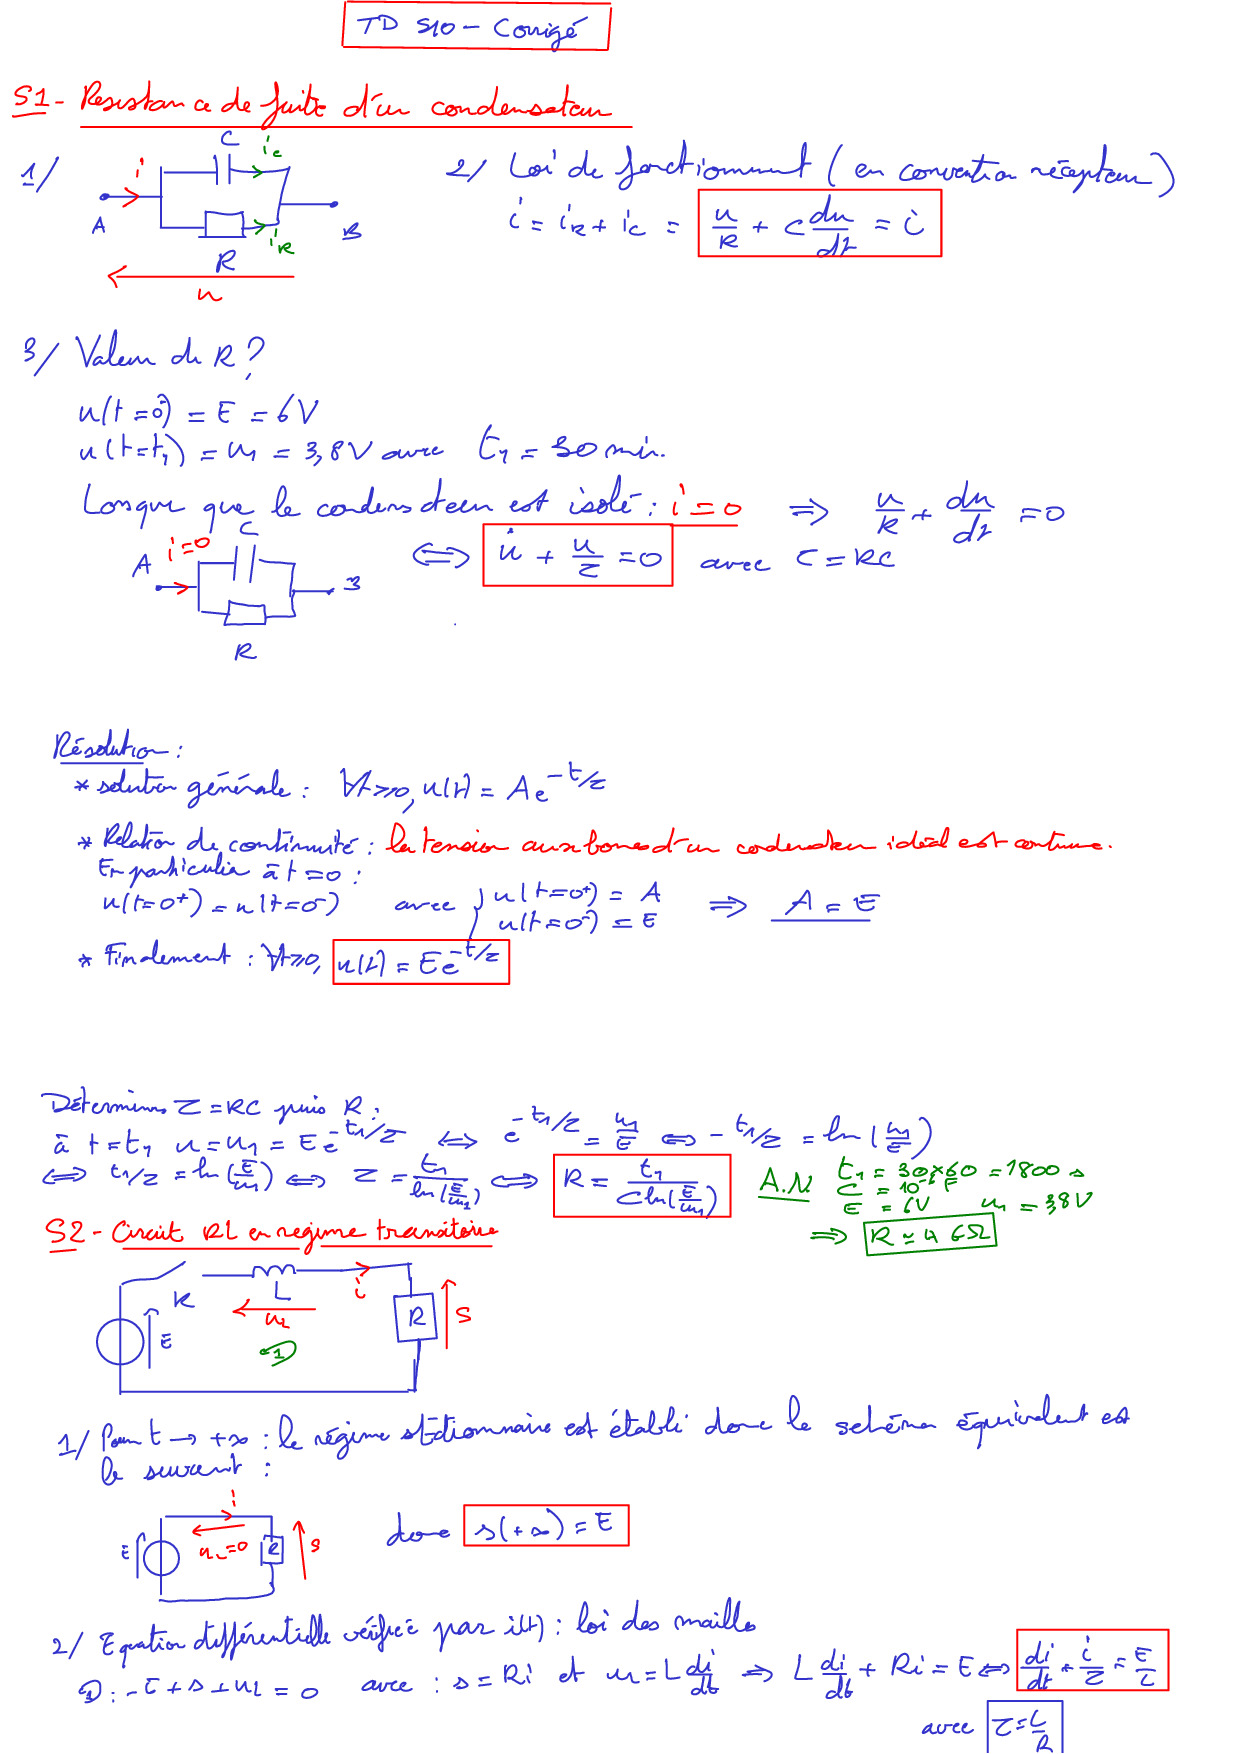 TD S10 - Corrigé
S1 - Resistance de fuite d'un condensateur
1/
i
C
i_c
A
B
R
i_R
u
2/ Loi de fonctionnement (en convention récepteur)
i = i_R + i_c = u/R + C du/dt = i
3/ Valeur de R?
u(t=0) = E = 6V
u(t=t₁) = u₁ = 3,8V avec t₁ = 30 min.
Lorsque que le condensateur est isolé : i=0 ⇒ u/R + du/dt = 0
⇔ u̇ + u/τ = 0 avec τ = RC
A
i=0
C
B
R
Résolution :
* solution générale : ∀t≥0, u(t) = A e^(-t/τ)
* Relation de continuité : la tension aux bornes d'un condensateur idéal est continue.
En particulier à t=0 :
u(t=0⁺) = u(t=0⁻) avec { u(t=0⁺) = A ⇒ A = E
u(t=0⁻) = E
* Finalement : ∀t≥0, u(t) = E e^(-t/τ)
Détermins τ = RC puis R :
à t=t₁ u = u₁ = E e^(-t₁/τ) ⇔ e^(-t₁/τ) = u₁/E ⇔ -t₁/τ = ln(u₁/E)
⇔ t₁/τ = ln(E/u₁) ⇔ τ = t₁/ln(E/u₁) ⇔ R = t₁/(C ln(E/u₁))
A.N t₁ = 30×60 = 1800 s
C = 10⁻⁶ F
E = 6V u₁ = 3,8V
⇒ R ≃ 4 GΩ
S2 - Circuit RL en regime transitoire
K
L
i
u_L
E
1
R
s
1/ Pour t → +∞ : le régime stationnaire est établi donc le schéma équivalent est
le suivant :
i
E
u_L=0
R
s
donc s(+∞) = E
2/ Equation différentielle vérifiée par i(t) : loi des mailles
1 : -E + s + u_L = 0 avec : s = Ri et u_L = L di/dt ⇒ L di/dt + Ri = E ⇔ di/dt + i/τ = E/L
avec τ = L/R